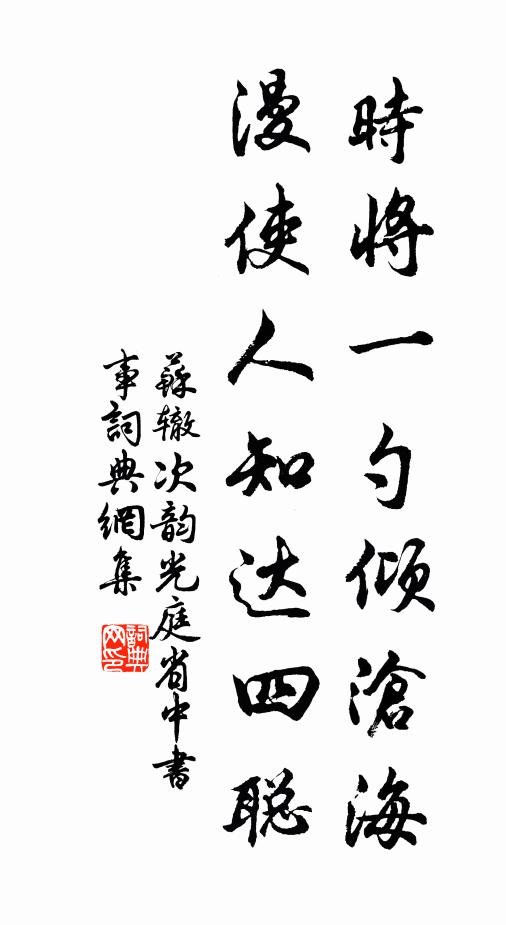 時將一勺傾滄海
漫使人知达四聪
蘇辙次韵光庭省中書
事詞典網集
詞典网印